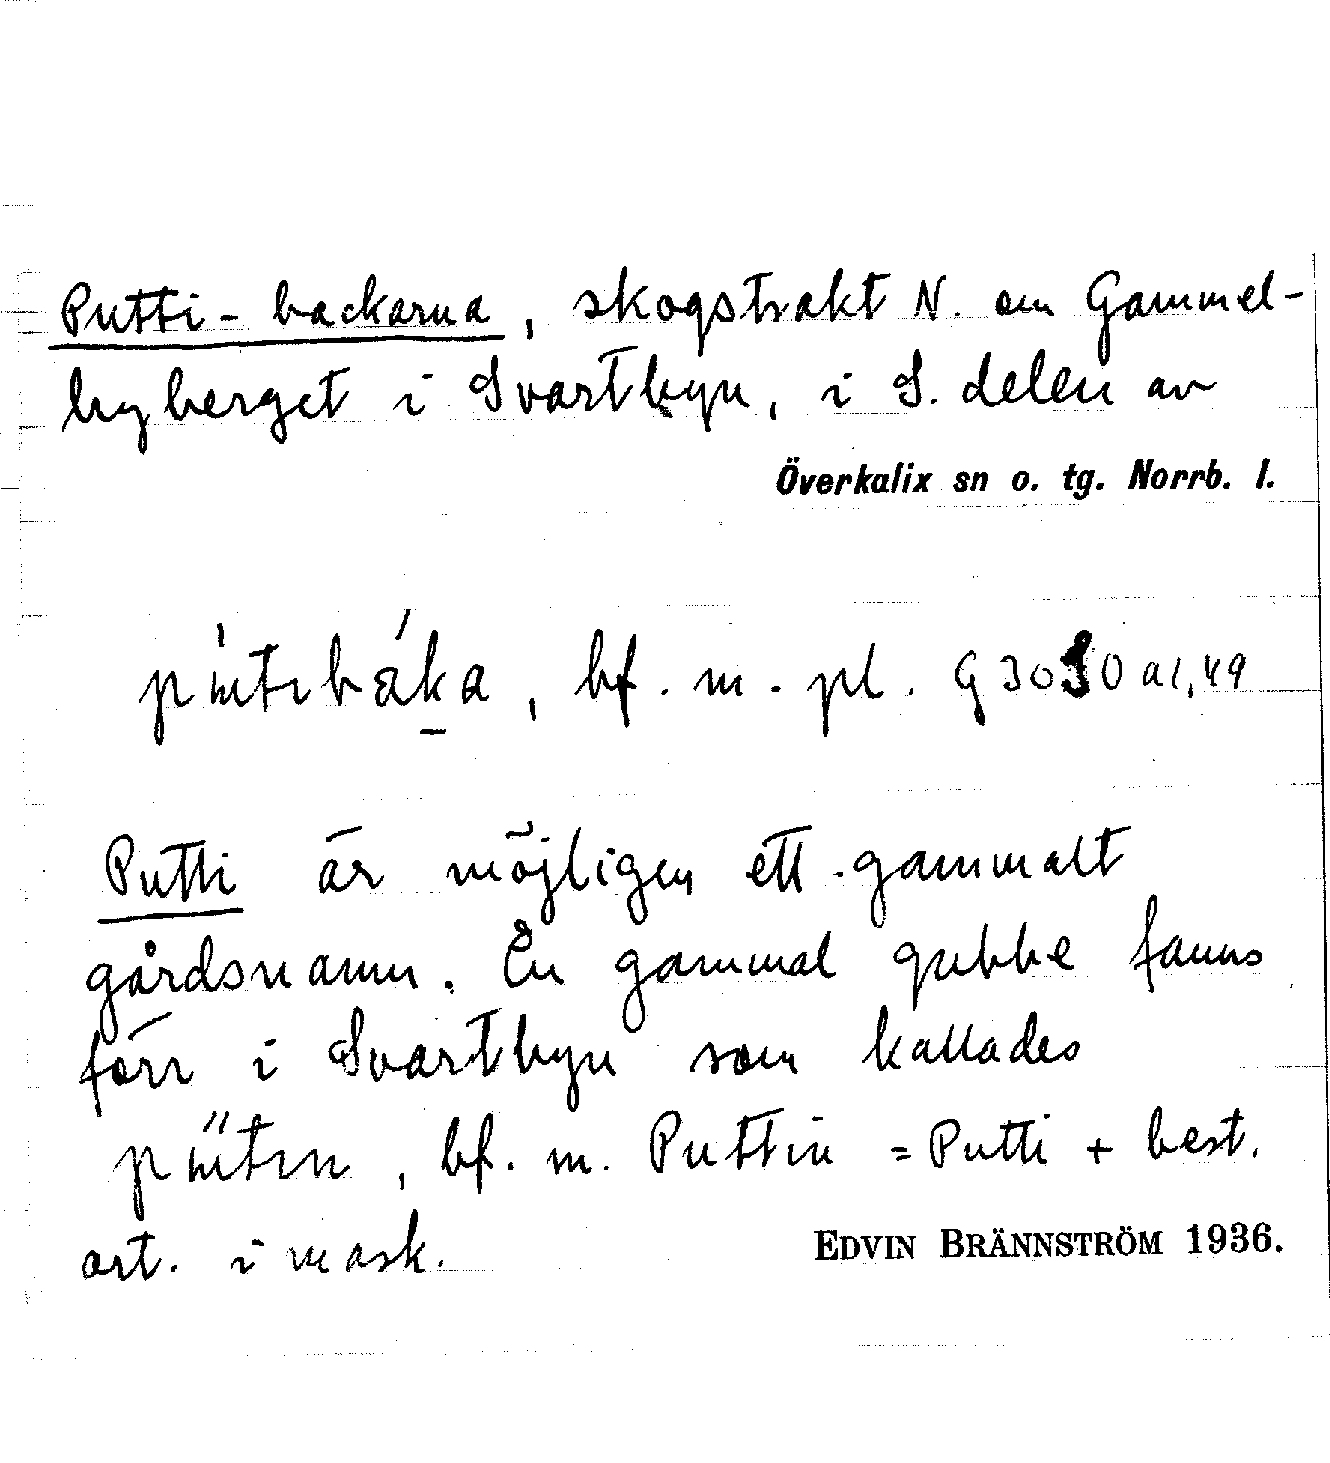 Putti-backarna, skogstrakt N. om Gammel-
byberget i Svartbyn, i S. delen av
Överkalix sn o. tg. Norrb. l.
bf. m. pl. G 3030 a1, 49
Putti är möjligen ett gammalt
gårdsnamn. En gammal gubbe fanns
förr i Svartbyn som kallades
bf. m. Puttin = Putti + best.
art. i mask.
EDVIN BRÄNNSTRÖM 1936.